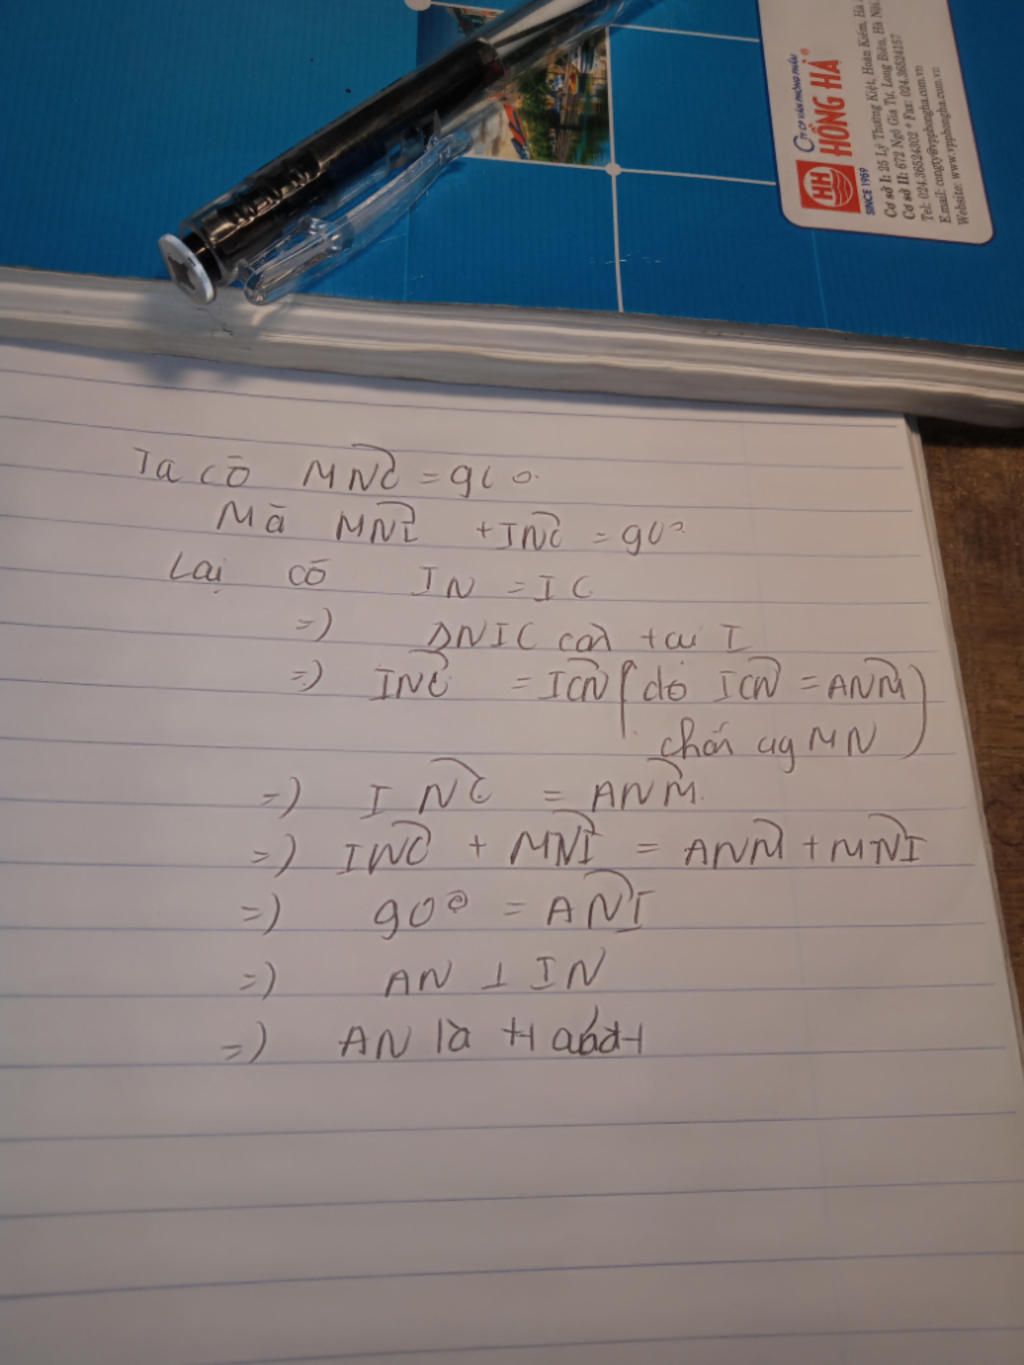 CTY CP VĂN PHÒNG PHẨM
HỒNG HÀ
HH
SINCE 1959
Cơ sở I: 25 Lý Thường Kiệt, Hoàn Kiếm, Hà
Cơ sở II: 672 Ngô Gia Tự, Long Biên, Hà Nội
Tel: 024.36524302 * Fax: 024.36524157
Email: congty@vpphongha.com.vn
Website: www.vpphongha.com.vn
Ta có MNC = 90
Mà MNI + INC = 90°
Lại có IN = IC
=) ΔNIC cân tại I
=) INC = ICN (do ICN = ANM
chắn ug MN)
=) INC = ANM
=) INC + MNI = ANM + MNI
=) 90° = ANI
=) AN ⊥ IN
=) AN là tt